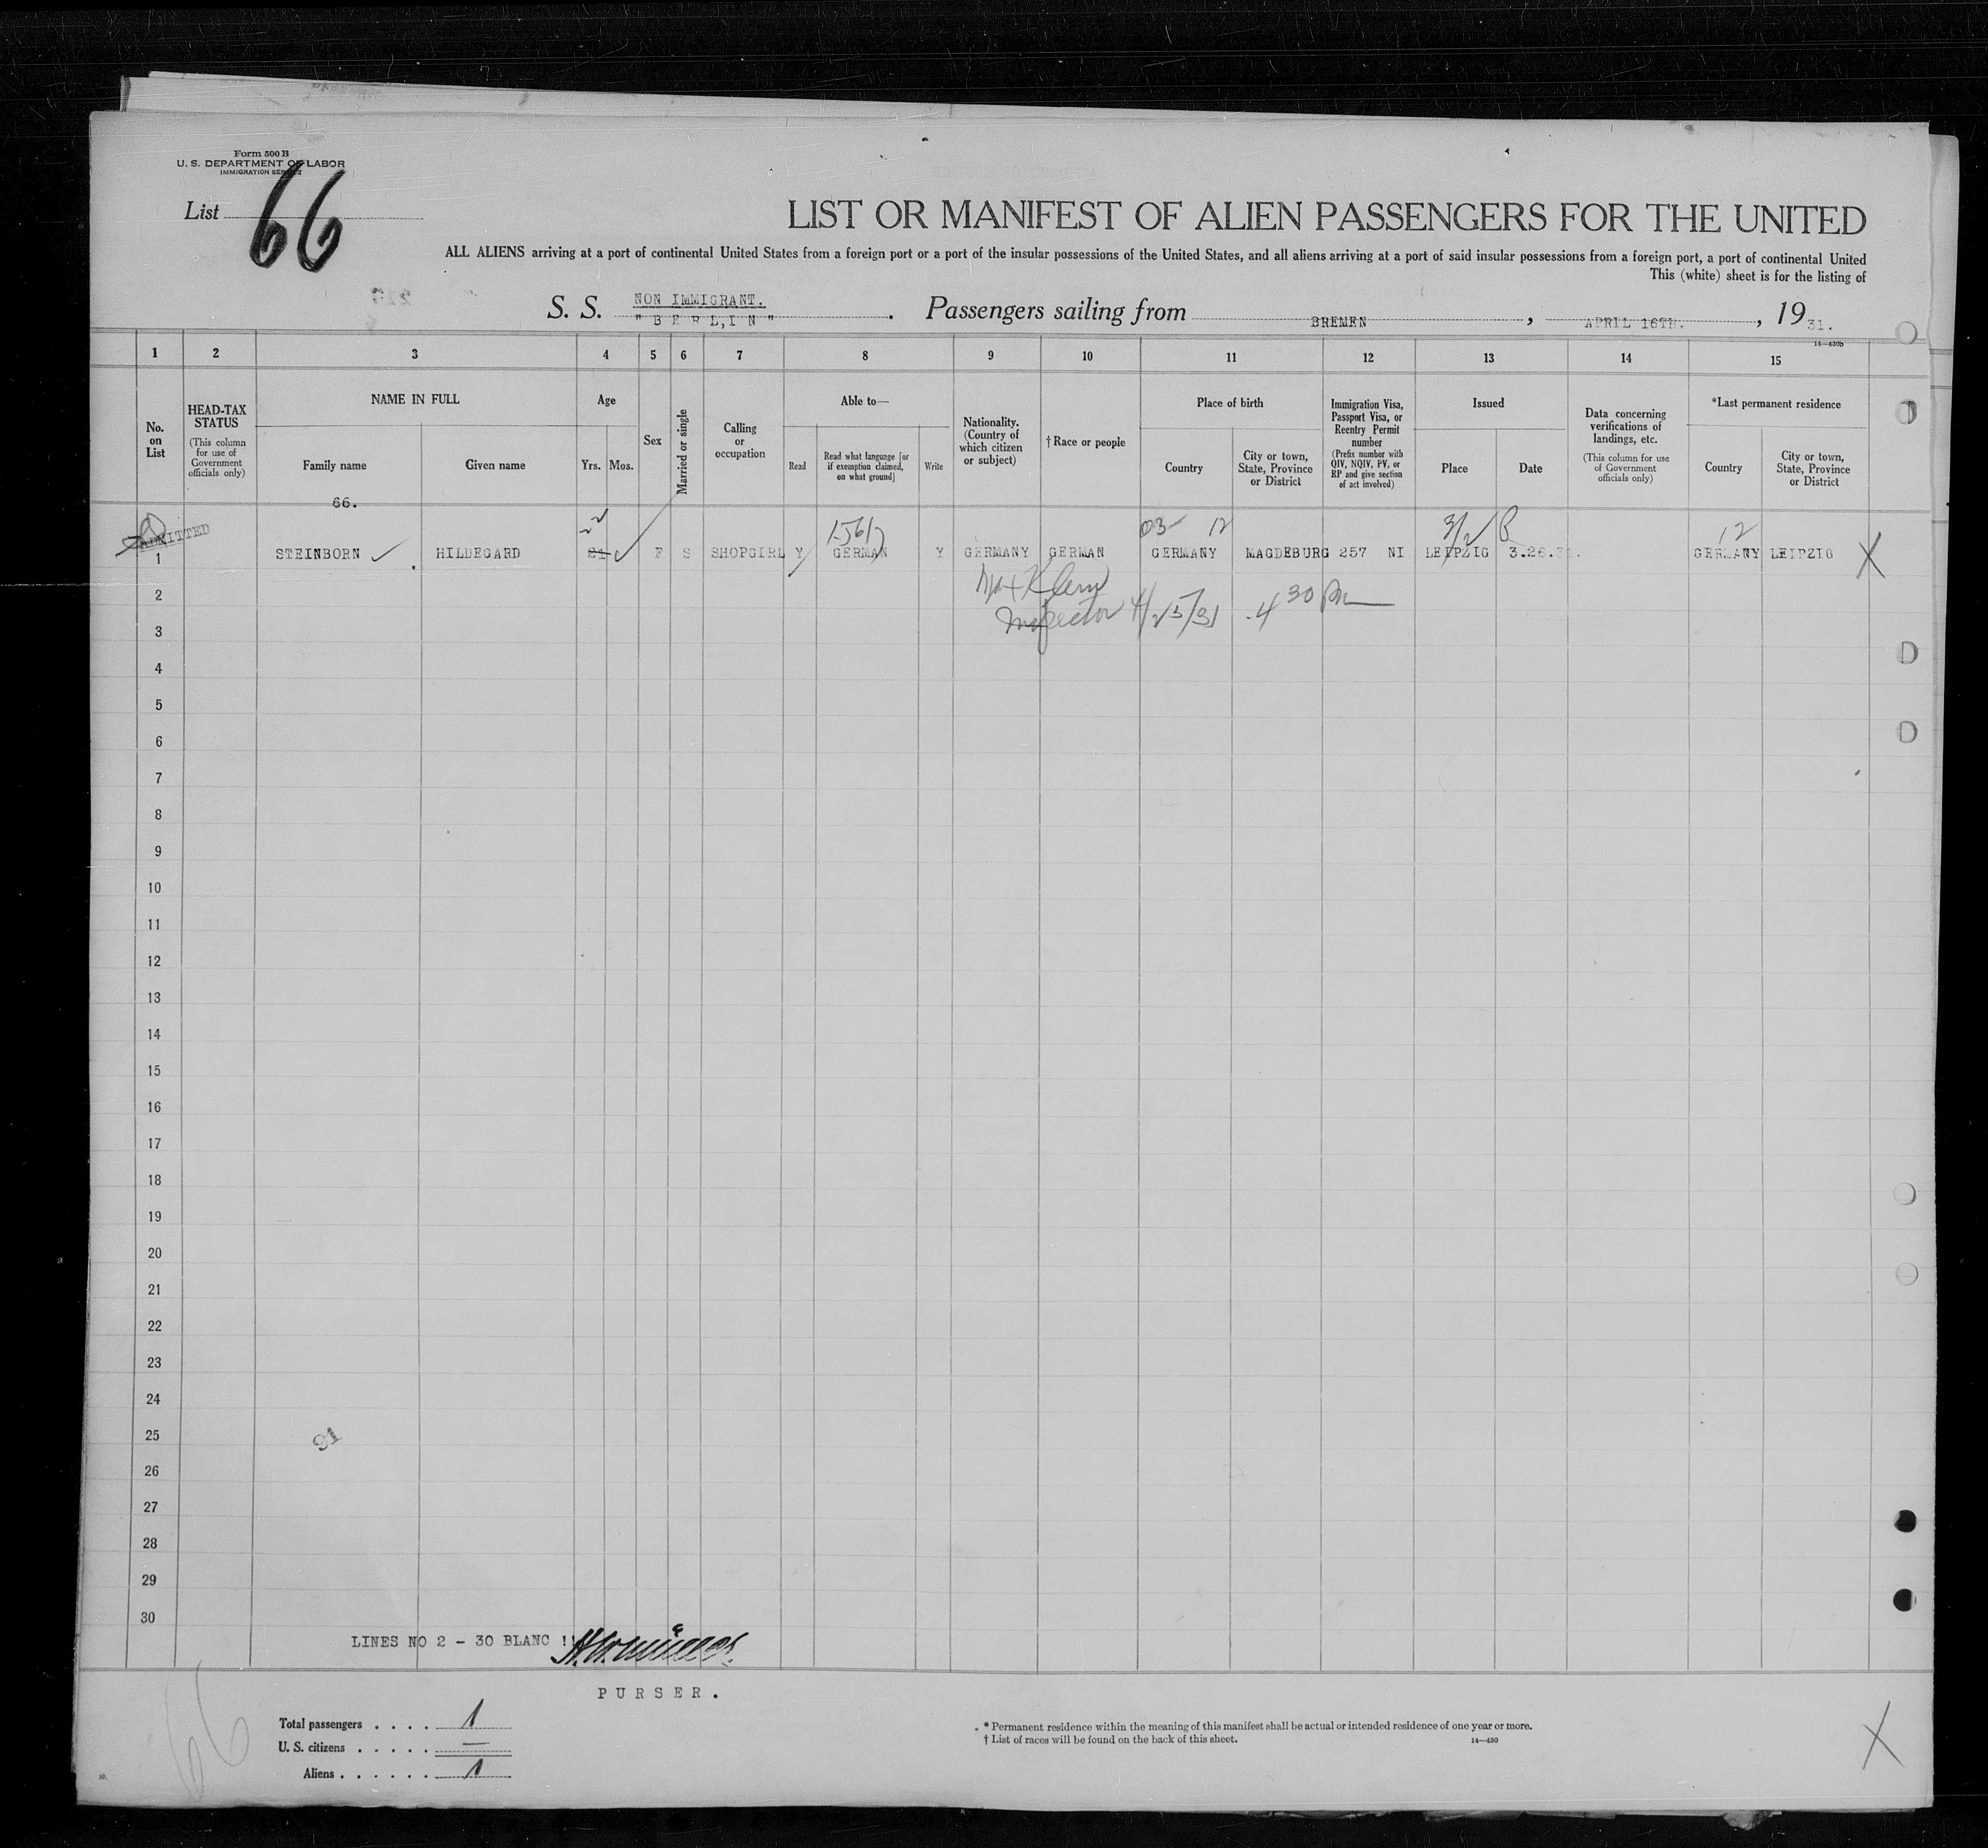 Form 500 B
U. S. DEPARTMENT OF LABOR
IMMIGRATION SERVICE
List 66
LIST OR MANIFEST OF ALIEN PASSENGERS FOR THE UNITED
ALL ALIENS arriving at a port of continental United States from a foreign port or a port of the insular possessions of the United States, and all aliens arriving at a port of said insular possessions from a foreign port, a port of continental United
This (white) sheet is for the listing of
NON IMMIGRANT.
S. S. "BERLIN". Passengers sailing from BREMEN, APRIL 16TH., 1931.
14—430b
1 2 3 4 5 6 7 8 9 10 11 12 13 14 15
No. on List
HEAD-TAX STATUS
(This column for use of Government officials only)
NAME IN FULL
Family name
Given name
Age
Yrs. Mos.
Sex
Married or single
Calling or occupation
Able to—
Read
Read what language [or if exemption claimed, on what ground]
Write
Nationality. (Country of which citizen or subject)
† Race or people
Place of birth
Country
City or town, State, Province or District
Immigration Visa, Passport Visa, or Reentry Permit number
(Prefix number with QIV, NQIV, PV, or RP and give section of act involved)
Issued
Place
Date
Data concerning verifications of landings, etc.
(This column for use of Government officials only)
*Last permanent residence
Country
City or town, State, Province or District
66.
ADMITTED
22 03 12 12
1 STEINBORN HILDEGARD F S SHOPGIRL Y GERMAN Y GERMANY GERMAN GERMANY MAGDEBURG 257 NI LEIPZIG 3.26.31. GERMANY LEIPZIG X
Max Klein
Inspector 4/25/31 4 30 Pm
2
3
4
5
6
7
8
9
10
11
12
13
14
15
16
17
18
19
20
21
22
23
24
25
26
27
28
29
30
91
LINES NO 2 - 30 BLANC !!
PURSER.
Total passengers . . . . 1
U. S. citizens . . . . . —
Aliens . . . . . . 1
* Permanent residence within the meaning of this manifest shall be actual or intended residence of one year or more.
† List of races will be found on the back of this sheet.
14—430
66
X